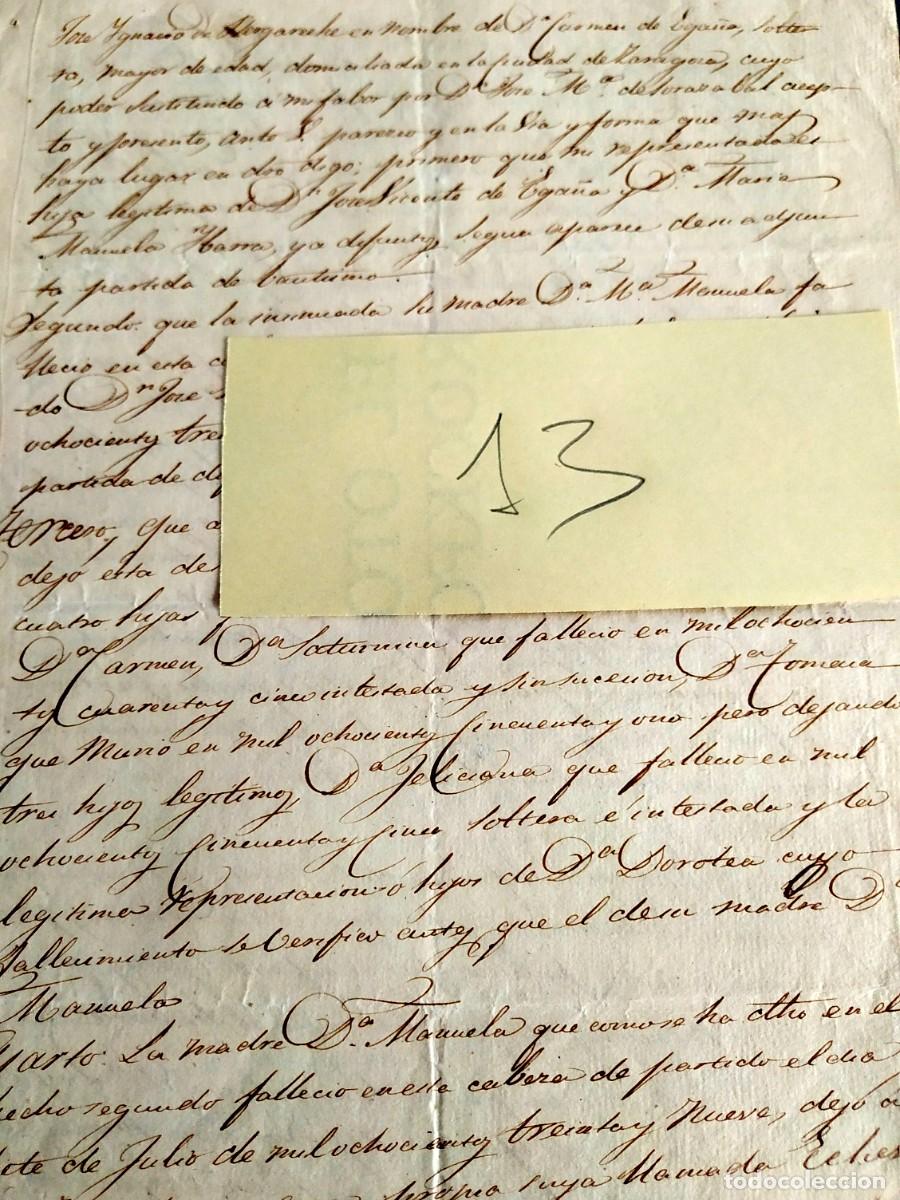 Jose Ygnacio de en nombre de Dª Carmen de Egaña, solte
ra, mayor de edad, domiciliada en la ciudad de Zaragoza, cuyo
poder sustituido á mi fabor por Dn Jose Mª de Sorazabal acep-
to y presento, ante V. parezco y en la via y forma que mas
haya lugar en dro digo; primero que mi representada es
hija legitima de Dn Jose Vicente de Egaña y Dª Maria
Manuela Ybarra, ya difuntos, segun aparece de su adjun
ta partida de bautismo.
Segundo: que la insinuada su madre Dª Mª Manuela fa
llecio en esta
do Dn Jose
ochocientos tre
partida de
Tercero, que
dejo esta de
cuatro hijas
Dª Carmen, Dª Saturnina que fallecio en mil ochocien
tos cuarenta y cinco intestada y sin sucecion, Dª Tomasa
que murio en mil ochocientos cincuenta y uno pero dejando
tres hijos legitimos, Dª Feliciana que fallecio en mil
ochocientos cincuenta y cinco soltera é intestada y la
legitima representacion ó hijos de Dª Dorotea cuyo
fallecimiento se berifico antes que el de su madre Dª
Manuela
Cuarto: La madre Dª Manuela que como se ha dho en el
hecho segundo fallecio en esta cabeza de partido el dia
de Julio de mil ochocientos treinta y nueve, dejó
propia suya llamada
13
todocoleccion